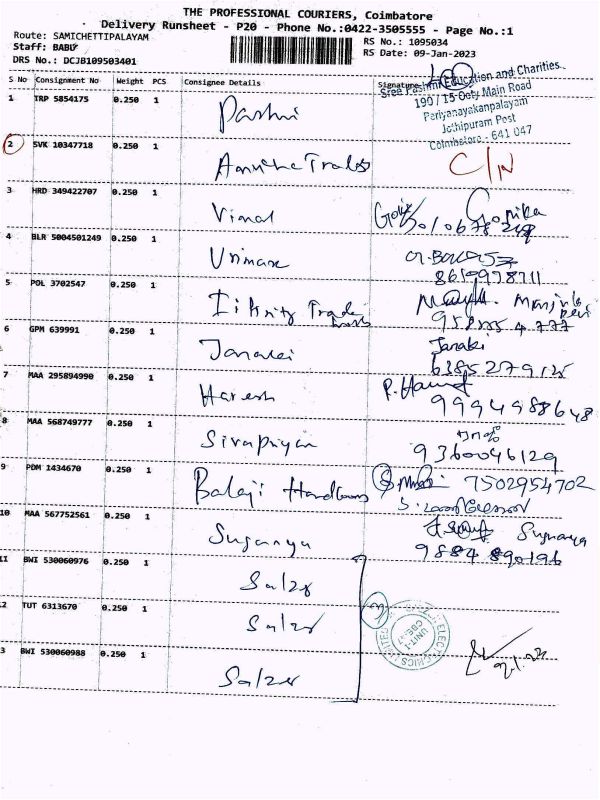 THE PROFESSIONAL COURIERS, Coimbatore
Delivery Runsheet - P20 - Phone No.:0422-3505555 - Page No.:1
Route: SAMICHETTIPALAYAM
RS No.: 1095034
Staff: BABU
RS Date: 09-Jan-2023
DRS No.: DCJB109503401
S No Consignment No Weight PCS Consignee Details Signature
Sree Rashmi Education and Charities
190 / 15 Ooty Main Road
Periyanayakanpalayam
Jothipuram Post
Coimbatore - 641 047
1 TRP 5854175 0.250 1
2 SVK 10347718 0.250 1 C/N
3 HRD 349422707 0.250 1 Vimal
4 BLR 5004501249 0.250 1
8610998711
5 POL 3702547 0.250 1
6 GPM 639991 0.250 1 Janaki Janaki
7 MAA 295894990 0.250 1 Haresh
9994988648
8 MAA 568749777 0.250 1 Sivapriyan
9360046129
9 PDM 1434670 0.250 1 Balaji Handlooms 7502954702
10 MAA 567752561 0.250 1 Suganya Suganya
9884890196
11 BWI 530060976 0.250 1 Salzer
2 TUT 6313670 0.250 1 Salzer
3 BWI 530060988 0.250 1 Salzer
SALZER ELECTRONICS LIMITED
UNIT-1